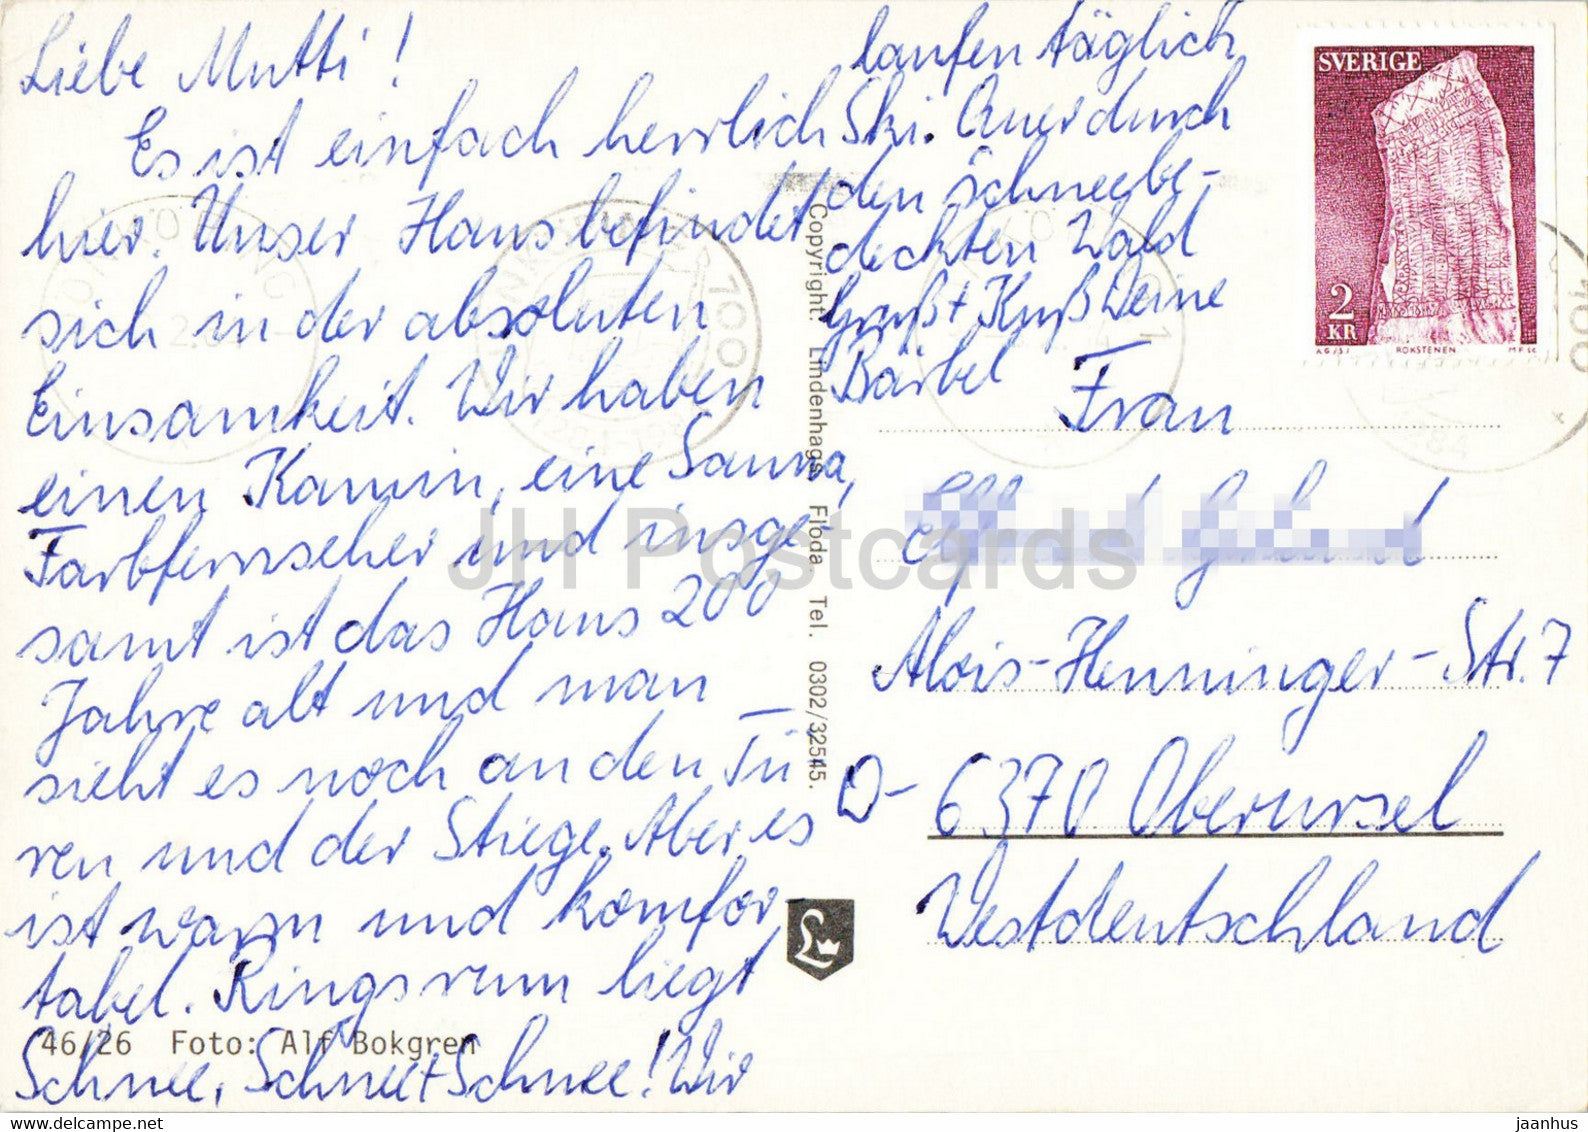 Liebe Mutti!
Es ist einfach herrlich
hier. Unser Haus befindet
sich in der absoluten
Einsamkeit. Wir haben
einen Kamin, eine Sauna,
Farbfernseher und insge-
samt ist das Haus 200
Jahre alt und man
sieht es noch an den Tü-
ren und der Stiege. Aber es
ist warm und komfor-
tabel. Ringsrum liegt
Schnee, Schnee + Schnee! Wir
laufen täglich
Ski. Quer durch
den schneebe-
deckten Wald
Gruß + Kuß Deine
Bärbel
SVERIGE
2
KR
ROKSTENEN
Frau
Alois-Henninger-Str. 7
D-6370 Oberursel
Westdeutschland
Copyright: Lindenhags, Floda. Tel. 0302/32545.
L
46/26 Foto: Alf Bokgren
JH Postcards
www.delcampe.net
jaanhus